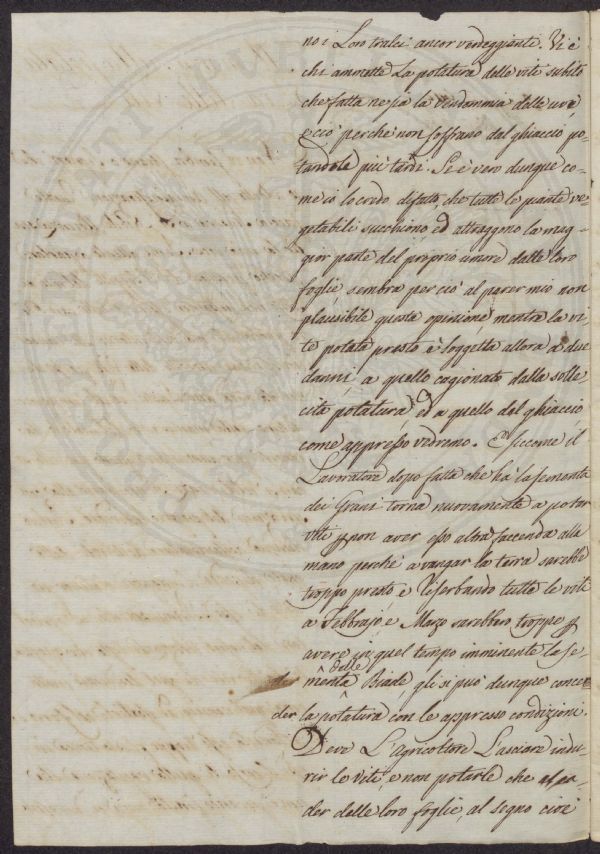 no i Loro tralci ancor verdeggianti. Vi è
chi ammette La potatura delle viti subito
che fatta ne sia la Vendemmia delle uve,
e ciò perche non soffrano dal ghiaccio po-
tandole più tardi. Se è vero dunque co-
me io lo credo difatto, che tutte le piante ve-
getabili succhiono, ed attraggono la mag-
gior parte del proprio umore dalle loro
foglie, sembra per ciò al parer mio non
plausibile questa opinione, mentre la vi-
te potata presto è soggetta allora a due
danni, a quello cagionato dalla solle-
cita potatura, ed a quello del ghiaccio,
come appresso vedremo. E siccome il
Lavoratore dopo fatta che hà la sementa
dei Grani torna nuovamente a potar
viti p non aver esso altra faccenda alla
mano perchè a vangar la terra sarebbe
troppo presto e riserbando tutte le viti
a Febbrajo, e Marzo sarebbero troppe p
avere in quel tempo imminente la se-
menta delle Biade, gli si può dunque conce-
der la potatura con le appresso condizioni.
Deve L'agricoltore Lasciare indu-
rir le viti, e non potarle che al ca-
der delle loro foglie, al segno cioè